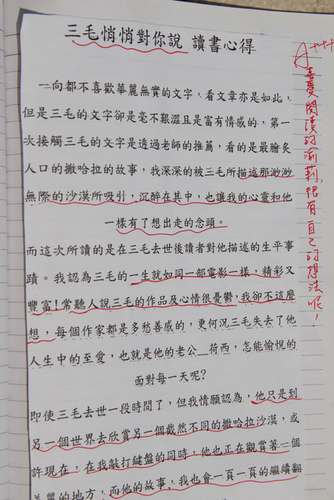 三毛悄悄對你說 讀書心得
一向都不喜歡華麗無實的文字，看文章亦是如此，
但是三毛的文字卻是毫不艱澀且是富有情感的，第一
次接觸三毛的文字是透過老師的推薦，看的是最膾炙
人口的撒哈拉的故事，我深深的被三毛所描述那渺渺
無際的沙漠所吸引，沉醉在其中，也讓我的心靈和他
一樣有了想出走的念頭。
而這次所讀的是在三毛去世後讀者對他描述的生平事
蹟。我認為三毛的一生就如同一部電影一樣，精彩又
豐富！常聽人說三毛的作品及心情很憂鬱，我卻不這麼
想，每個作家都是多愁善感的，更何況三毛失去了他
人生中的至愛，也就是他的老公__荷西，怎能愉悅的
面對每一天呢？
即使三毛去世一段時間了，但我情願認為，他只是到
另一個世界去欣賞另一個截然不同的撒哈拉沙漠，或
許現在，在我敲打鍵盤的同時，他也正在觀賞著一個
美麗的地方，而他的故事，我也會一頁一頁的繼續翻
A+++
喜愛閱讀的渝莉，很有自己的想法呢！